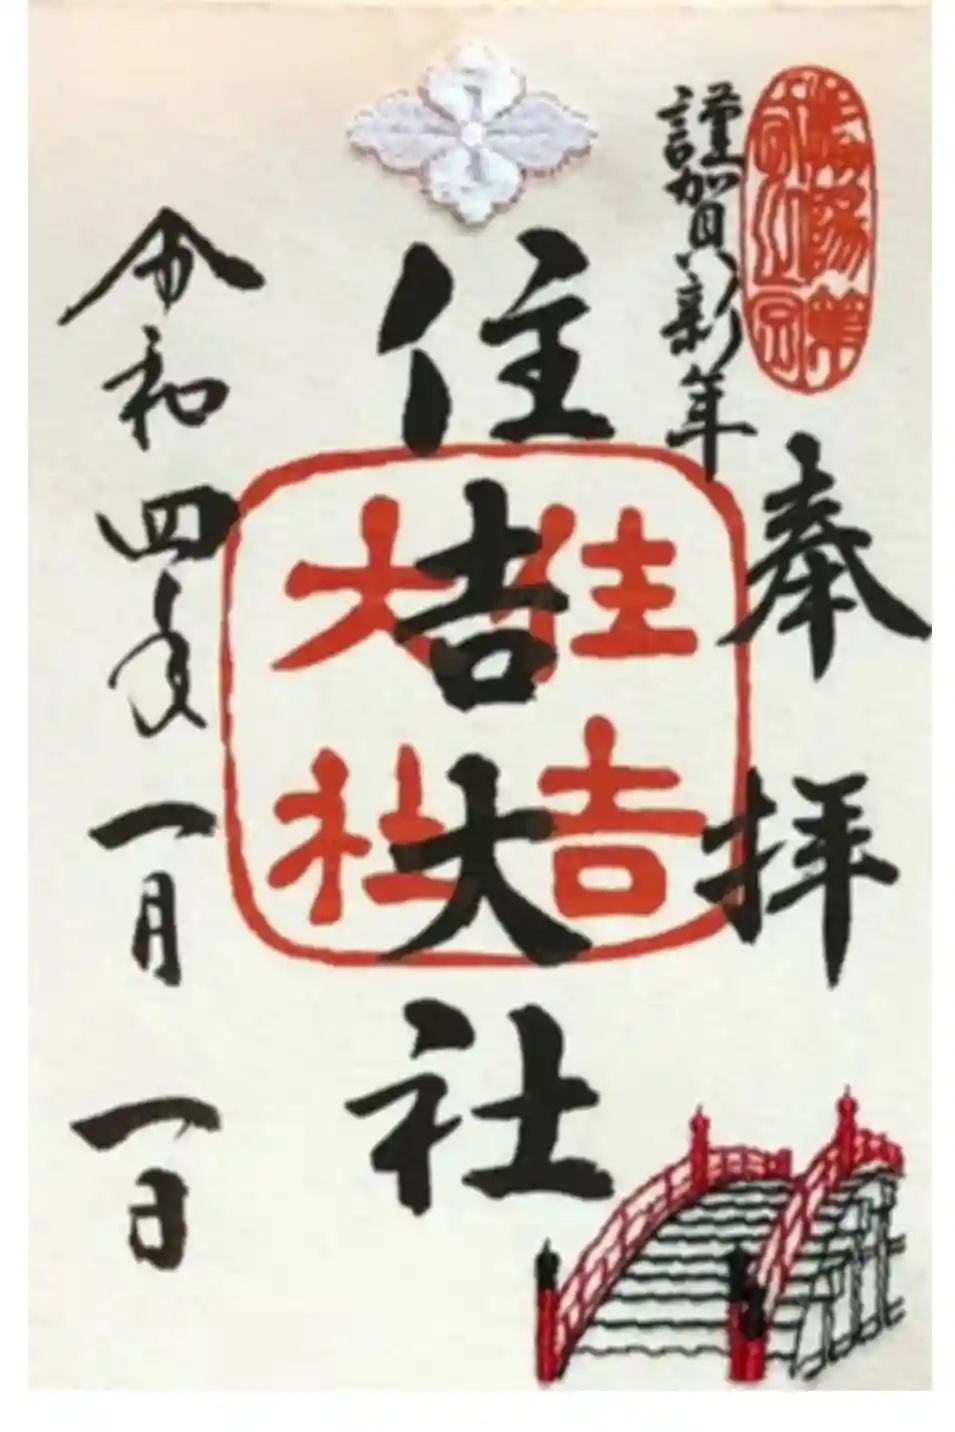 奉拝
謹賀新年
住吉大社
住吉
大社
令和四年一月一日